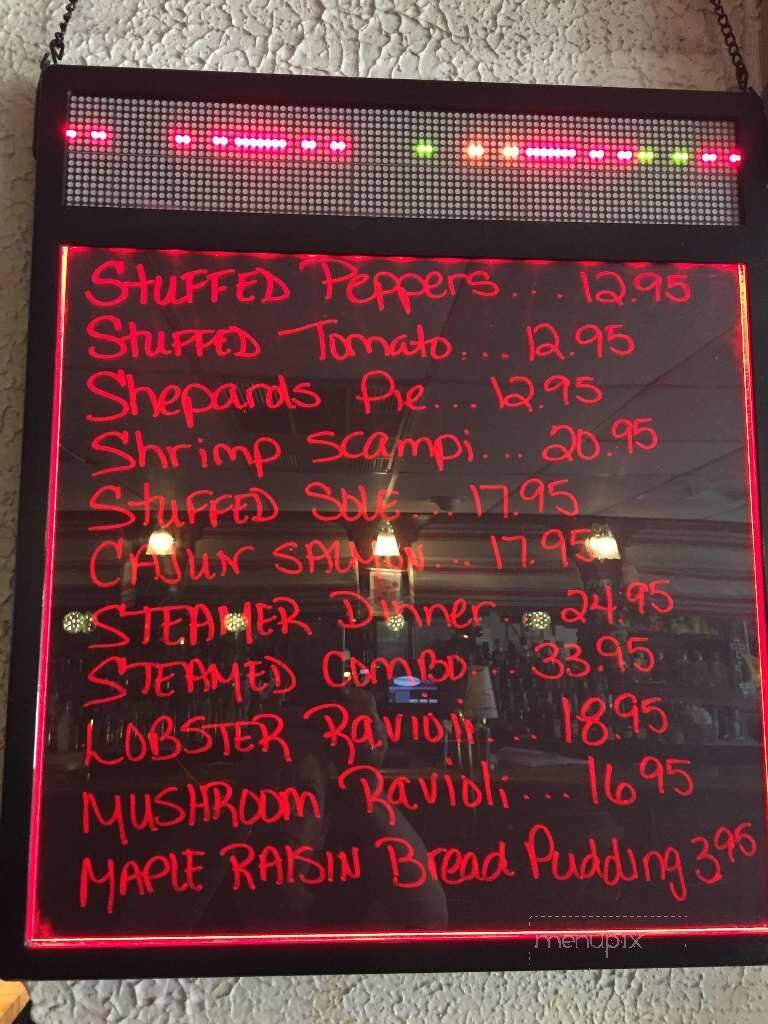 STUFFED Peppers... 12.95
STUFFED Tomato... 12.95
Shepards Pie... 12.95
Shrimp Scampi... 20.95
STUFFED SOLE... 17.95
CAJUN SALMON... 17.95
STEAMER Dinner... 24.95
STEAMED COMBO... 33.95
LOBSTER Ravioli... 18.95
MUSHROOM Ravioli... 16.95
MAPLE RAISIN Bread Pudding 3.95
menupix